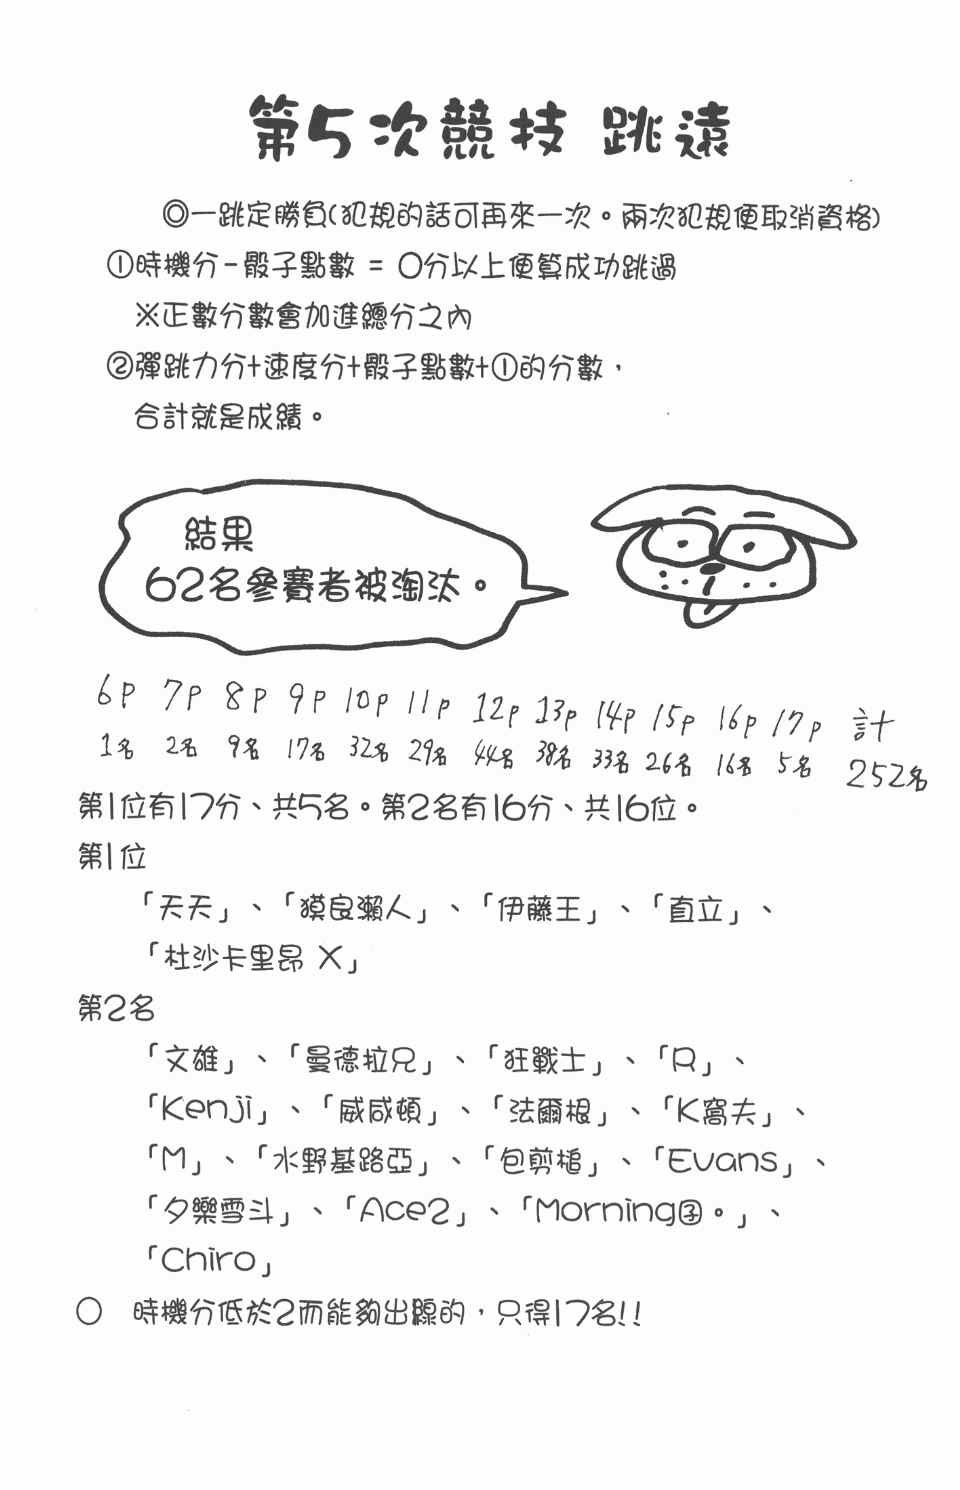 第5次競技 跳遠
◎一跳定勝負(犯規的話可再來一次。兩次犯規便取消資格)
①時機分-骰子點數 = 〇分以上便算成功跳過
※正數分數會加進總分之內
②彈跳力分+速度分+骰子點數+①的分數，
合計就是成績。
結果
62名參賽者被淘汰。
6P 7P 8P 9P 10P 11P 12P 13P 14P 15P 16P 17P 計
1名 2名 9名 17名 32名 29名 44名 38名 33名 26名 16名 5名 252名
第1位有17分、共5名。第2名有16分、共16位。
第1位
「天天」、「獏良瀨人」、「伊藤王」、「直立」、
「杜沙卡里昂 X」
第2名
「文雄」、「曼德拉兄」、「狂戰士」、「R」、
「Kenji」、「威咸頓」、「法爾根」、「K窩夫」、
「M」、「水野基路亞」、「包剪槌」、「Evans」、
「夕樂雪斗」、「Ace2」、「Morning囝。」、
「Chiro」
〇 時機分低於2而能夠出線的，只得17名!!